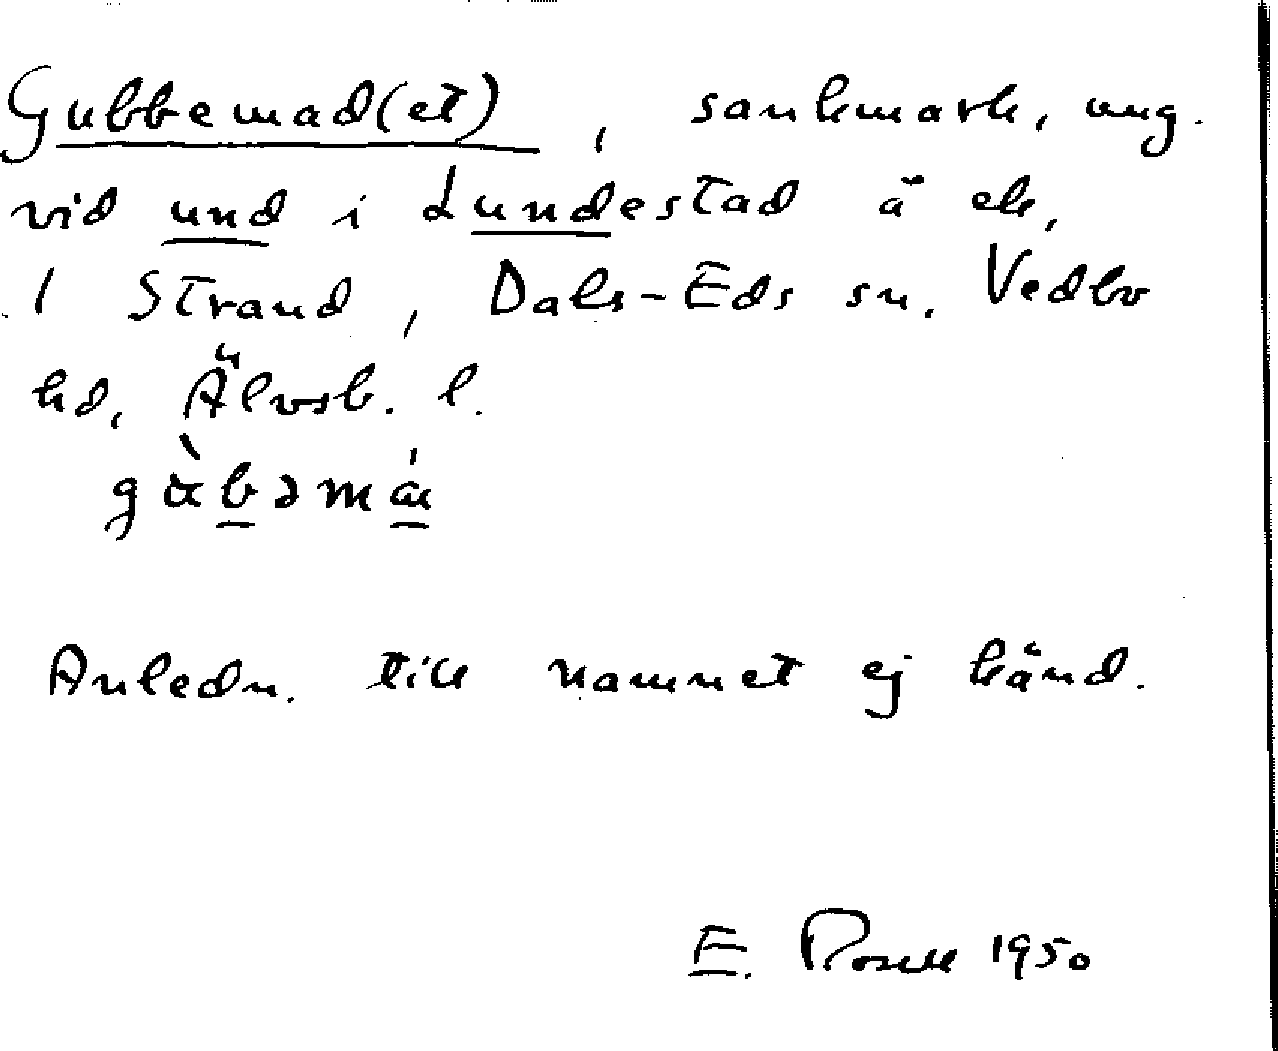 Gubbemad(et), sankmark, ung.
vid und i Lundestad å ek.
1 Strand, Dals-Eds sn. Vedbo
hd, Älvsb. l.
Anledn. till namnet ej känd.
E. Rosell 1950